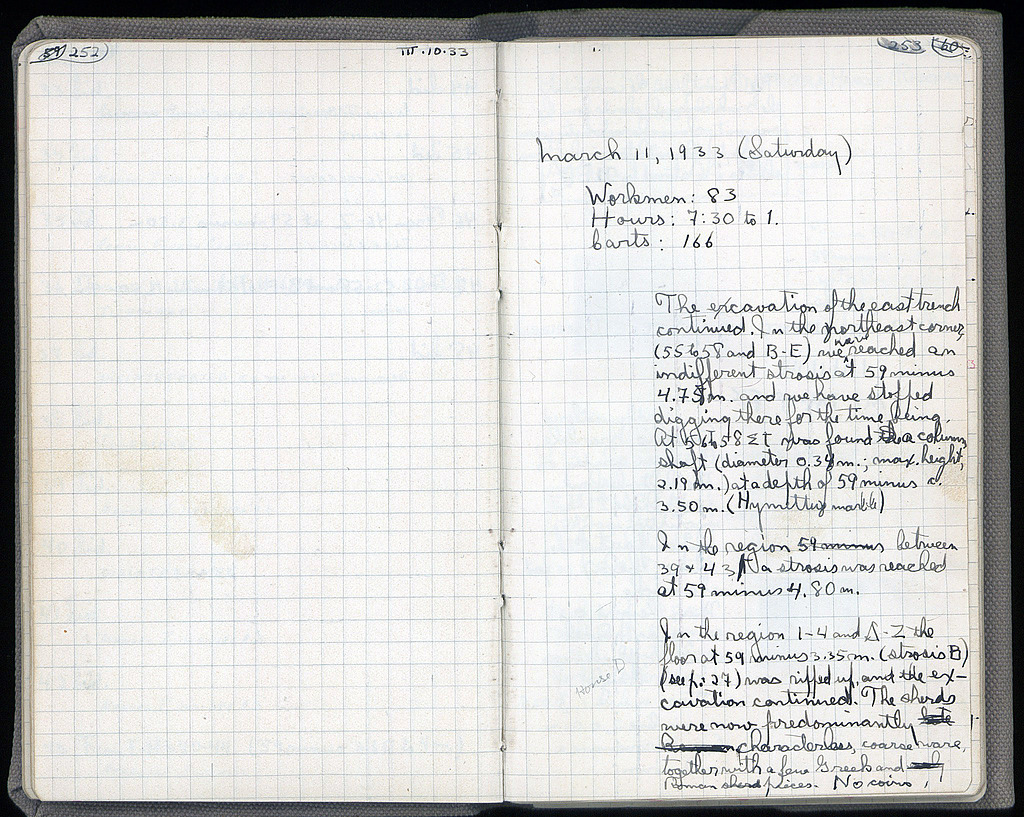 252
III.10.33
253
60
March 11, 1933 (Saturday)
Workmen: 83
Hours: 7:30 to 1.
Carts: 166
The excavation of the east trench
continued. In the northeast corner,
(55 to 58 and B-E) we have reached an
indifferent strosis at 59 minus
4.75 m. and we have stopped
digging there for the time being.
At 56 to 58 was found a column
shaft (diameter 0.34 m.; max. height,
2.19 m.) at a depth of 59 minus c.
3.50 m. (Hymettus marble)
In the region 59 minus between
39 + 43 a strosis was reached
at 59 minus 4.80 m.
In the region 1-4 and Δ-Z the
floor at 59 minus 3.35 m. (strosis B)
(see p. 27) was ripped up, and the ex-
cavation continued. The sherds
were now predominantly late
characterless, coarse ware,
together with a few Greek and
Roman sherd pieces. No coins.
House D